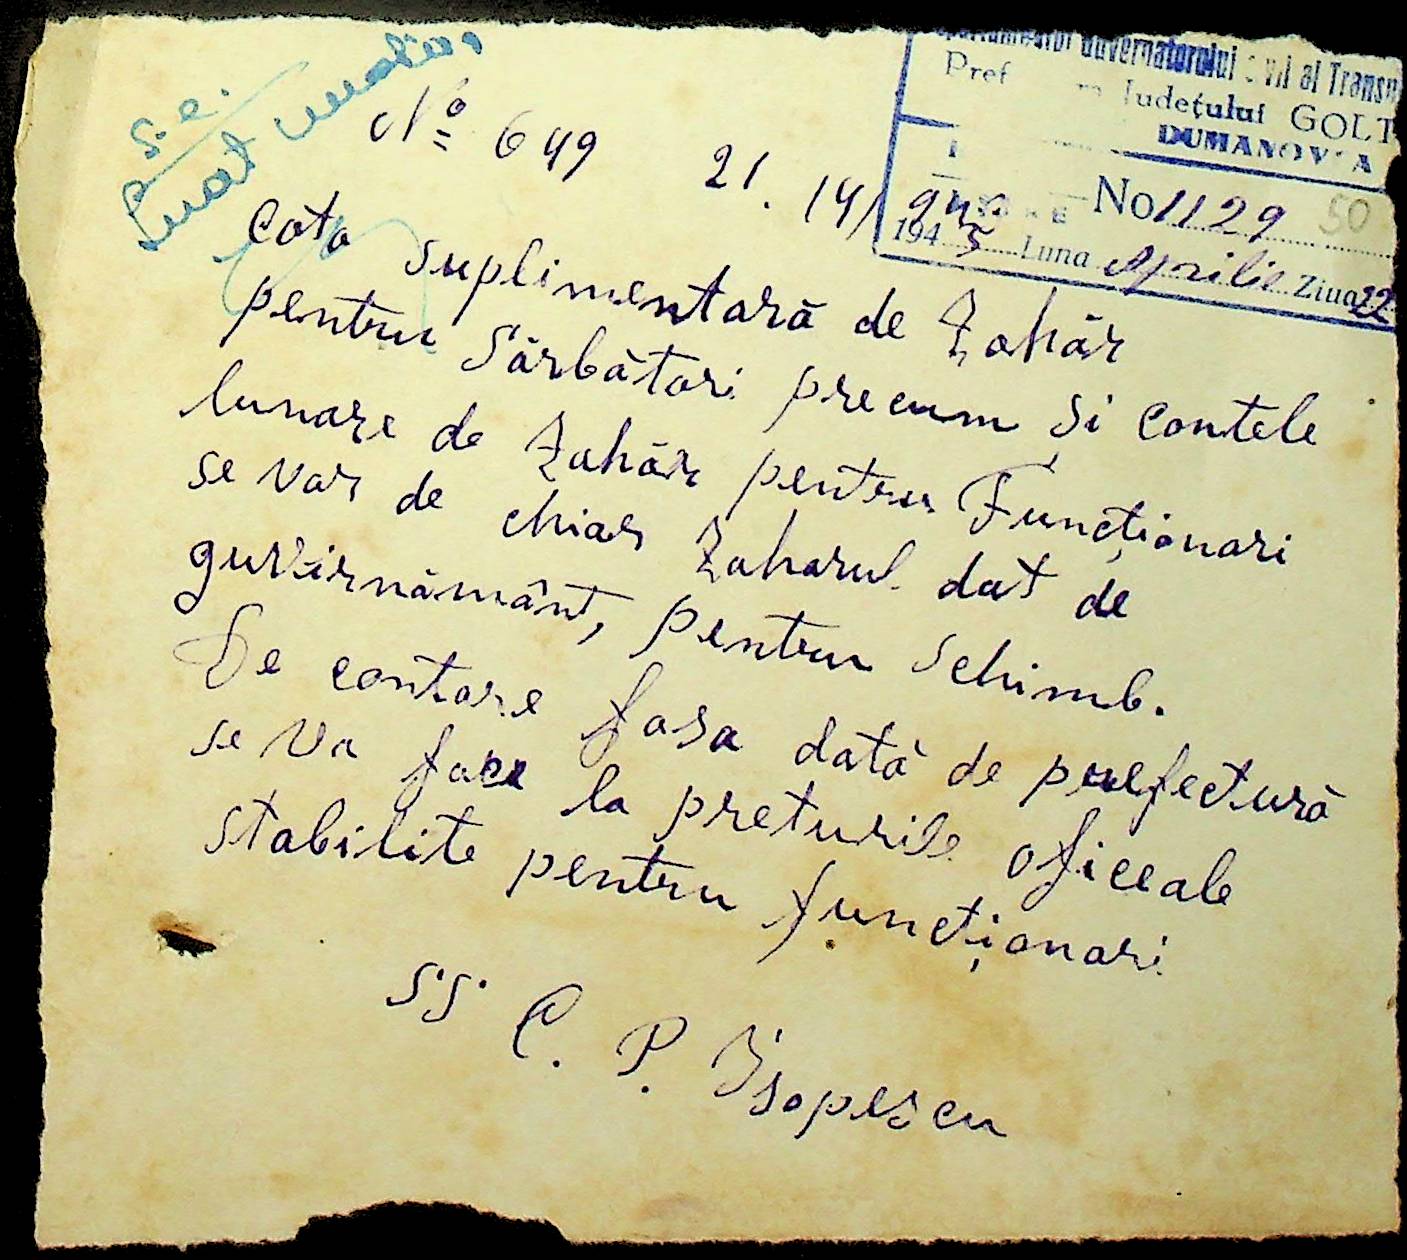 s. e.
Luat
Guvernatorului Civil al Transn
Pref Județului GOLT
DUMANOVCA
No 1129 50
194 3 Luna Aprilie Ziua 22
No 649 21. 14/
Cota suplimentară de Zahăr
pentru Sărbători precum și contele
lunare de Zahăr pentru Funcționari
se vor de chiar Zaharul dat de
guvărnământ, pentru schimb.
De contare fasa dată de prefectură
se va face la preturile oficeale
stabilite pentru funcționari
ss. C. P. Isopescu